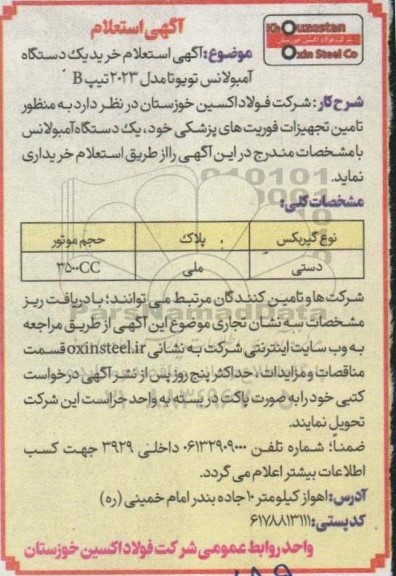 آگهی استعلام
Khouzestan
Oxin Steel Co
موضوع: آگهی استعلام خرید یک دستگاه
آمبولانس تویوتا مدل ۲۰۲۳ تیپ B
شرح کار: شرکت فولاد اکسین خوزستان در نظر دارد به منظور
تامین تجهیزات فوریت های پزشکی خود، یک دستگاه آمبولانس
با مشخصات مندرج در این آگهی را از طریق استعلام خریداری
نماید.
مشخصات کلی:
نوع گیربکس پلاک حجم موتور
دستی ملی ۳۵۰۰CC
شرکت ها و تامین کنندگان مرتبط می توانند؛ با دریافت ریز
مشخصات سه نشان تجاری موضوع این آگهی از طریق مراجعه
به وب سایت اینترنتی شرکت به نشانی oxinsteel.ir قسمت
مناقصات و مزایدات، حداکثر پنج روز پس از نشر آگهی درخواست
کتبی خود را به صورت پاکت در بسته به واحد حراست این شرکت
تحویل نمایند.
ضمناً؛ شماره تلفن ۰۶۱۳۲۹۰۹۰۰۰ داخلی ۳۹۲۹ جهت کسب
اطلاعات بیشتر اعلام می گردد.
آدرس: اهواز کیلومتر ۱۰ جاده بندر امام خمینی (ره)
کد پستی: ۶۱۷۸۸۱۳۱۱۱
واحد روابط عمومی شرکت فولاد اکسین خوزستان
ParsNamadData